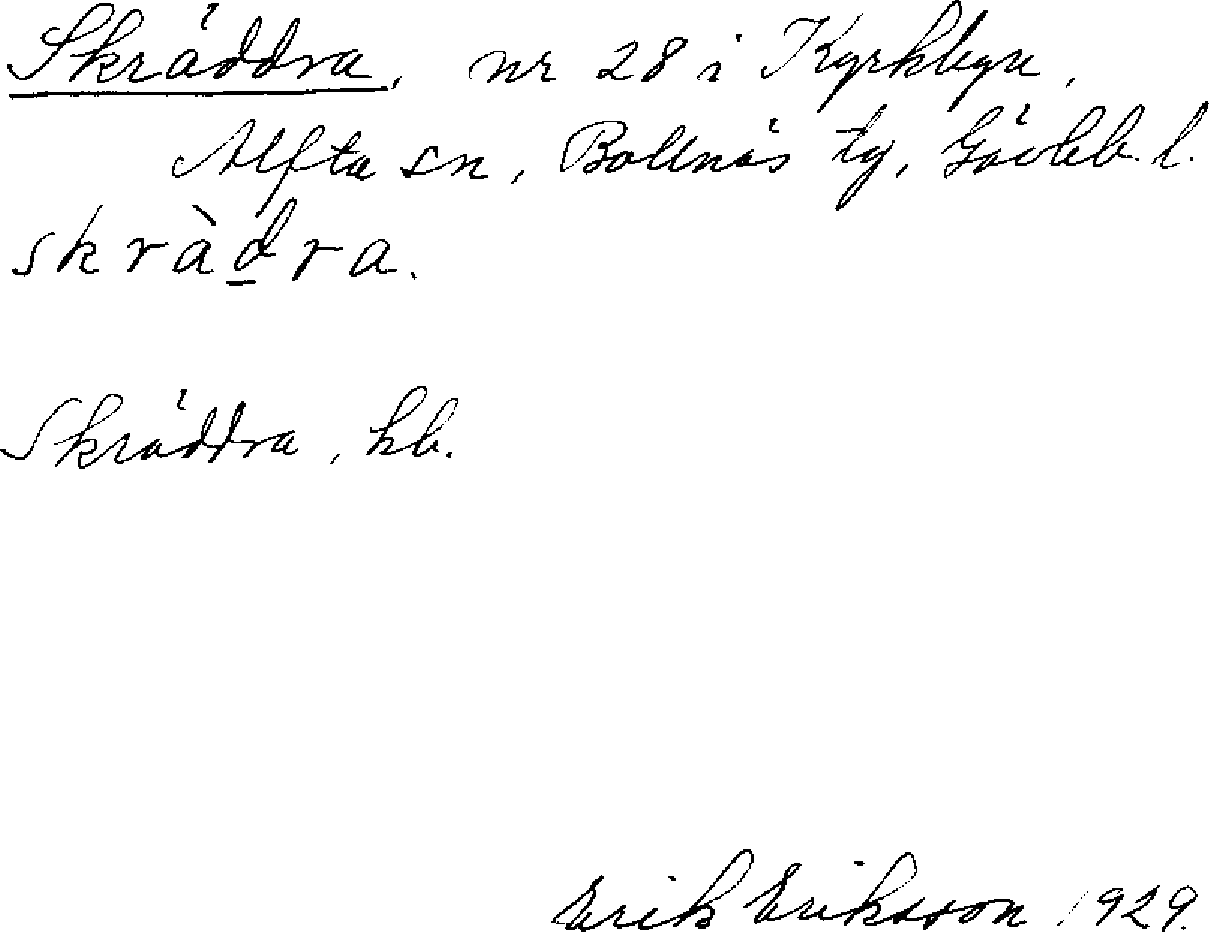 Skräddra, nr 28 i Kyrkbyn,
Alfta sn, Bollnäs tg, Gävleb. l.
skràd̲ra.
Skräddra, kb.
Erik Eriksson 1929.